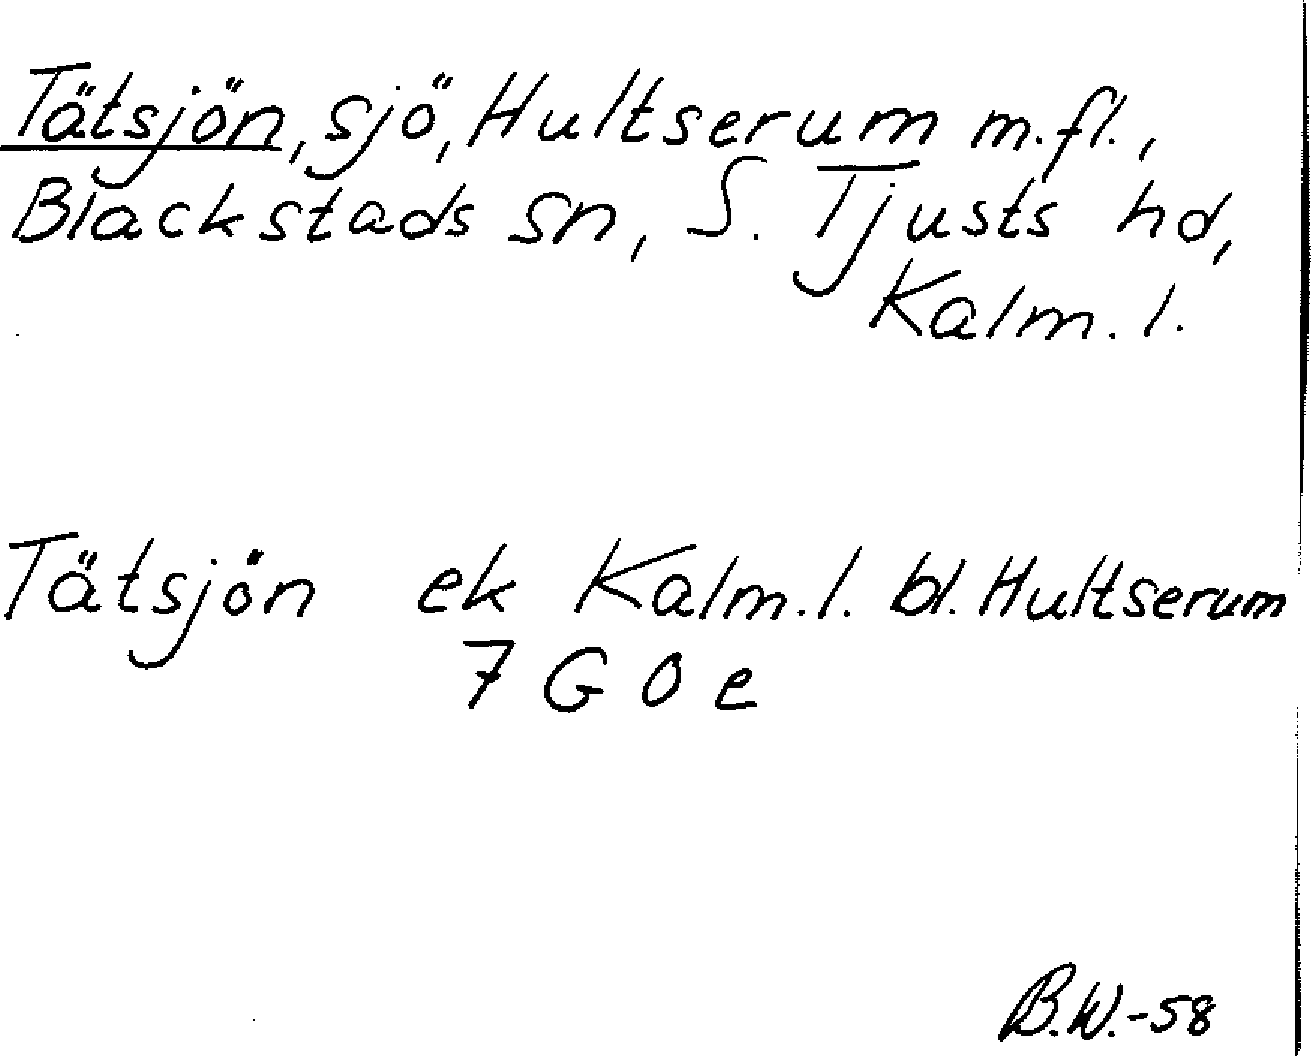 Tätsjön, sjö, Hultserum m.fl.,
Blackstads sn, S. Tjusts hd,
Kalm. l.
Tätsjön ek Kalm. l. bl. Hultserum
7 G 0 e
B.W.-58